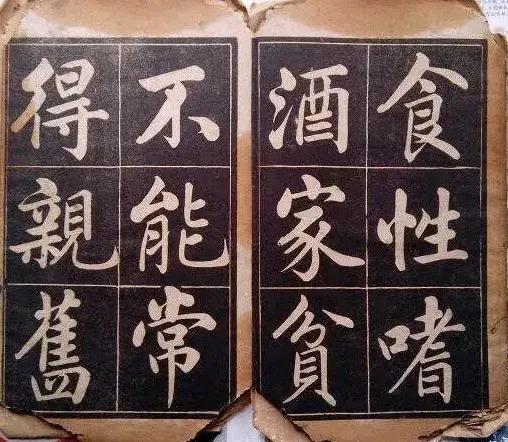 食性嗜
酒家貧
不能常
得親舊